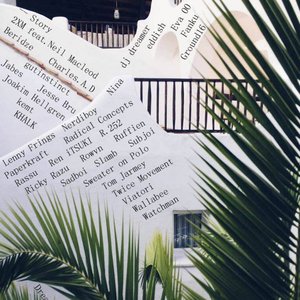 Story
2XM feat.Neil Macleod
Beridze
Charles.A.D
gutinstinct
Jesse Bru
Jahes
Joakim Hellgren
kemt
KHALK
Nina
dj dreamer
eddish
Eva 00
Fanku
Ground16
Lonny Frings
Nerdiboy
Paperkraft
Radical Concepts
Rassu
Ren ITSUKI
R.252
Ricky Razu
Rowyn
Ruffien
Sadboi
Slamb
Subjoi
Sweater on Polo
Tom Jarmey
Twice Movement
Viatori
Wallabee
Watchman